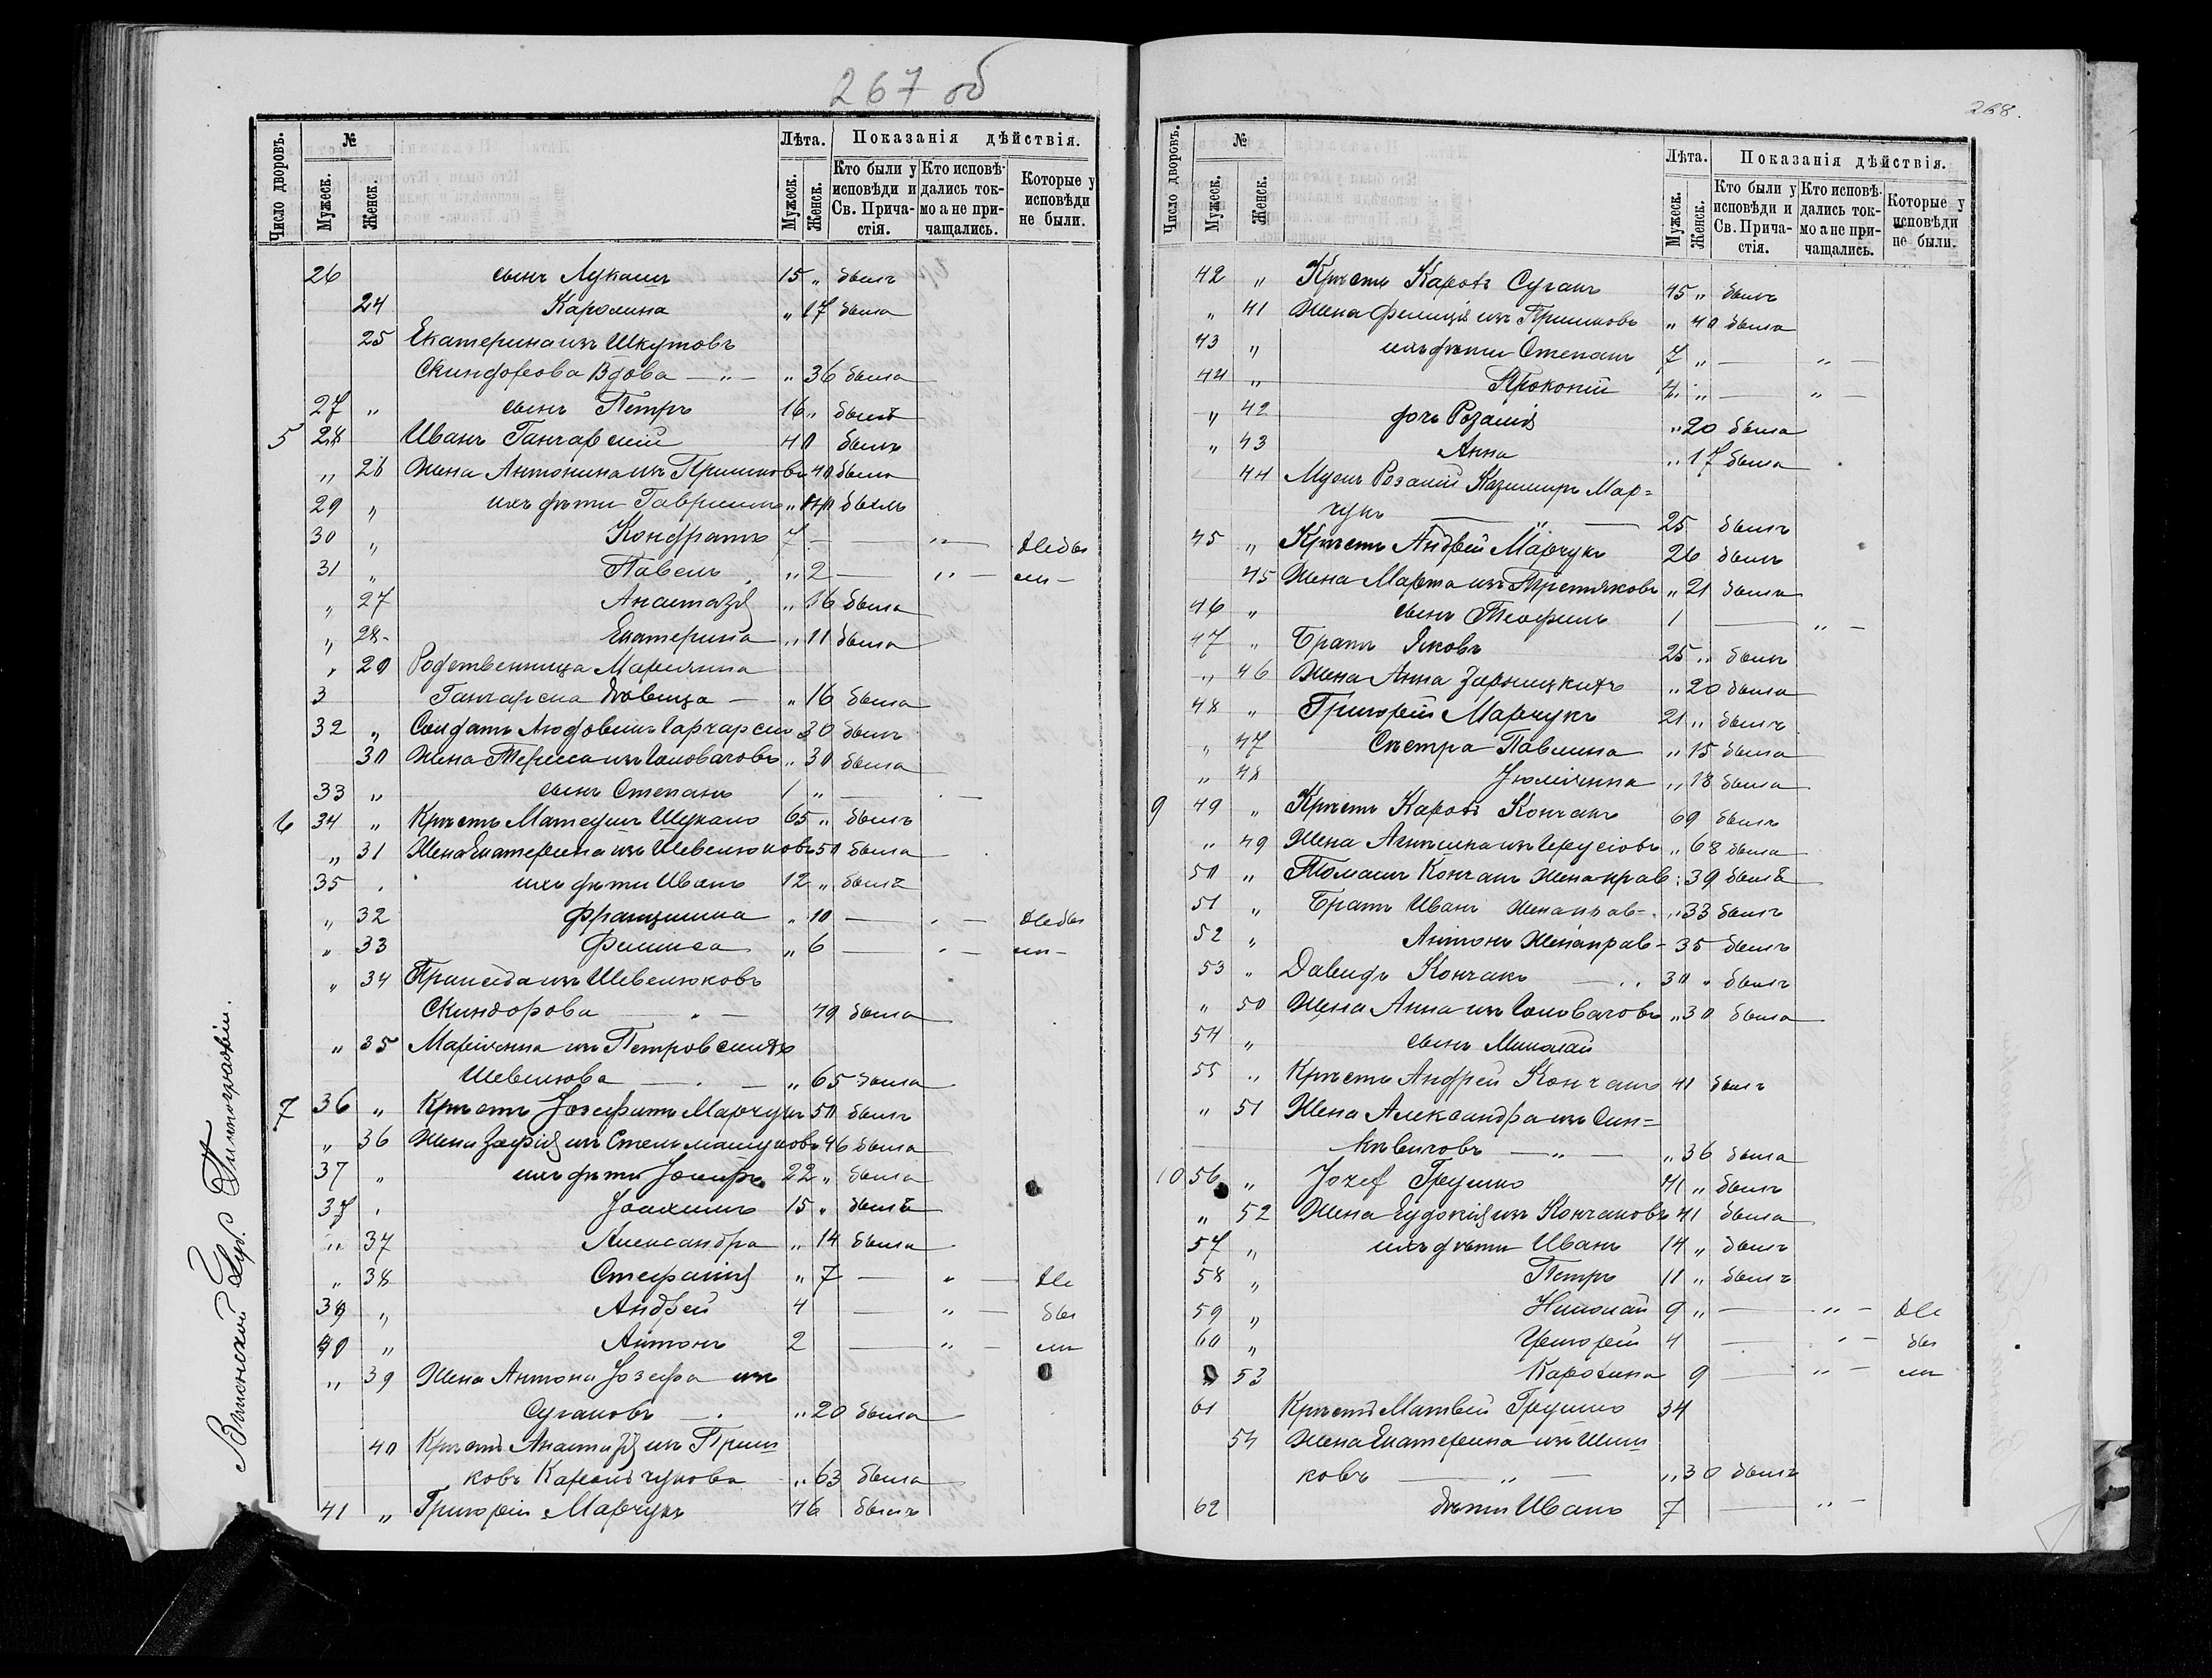 267 об
Число дворовъ. № Мужеск. Женск. Лѣта. Мужеск. Женск. Показанія дѣйствія.
Кто были у исповѣди и Св. Прича-стія. Кто исповѣ-дались ток-мо а не при-чащались. Которые у исповѣди не были.
26 сынъ Лукашъ 15 „ былъ
24 Каролина „ 17 была
25 Екатерина изъ Шкутовъ
Вдова — „ — „ 36 была
27 „ сынъ Петръ 16 „ былъ
5 28 Иванъ Ганчарскій 40 былъ
„ 26 Жена Антонина изъ Пришковъ 40 была
29 „ ихъ дѣти Гавриилъ былъ
30 „ Кондратъ 7 — „ — Не бы
31 „ Павелъ „ 2 — „ — ли —
„ 27 Анастазія „ 16 была
„ 28 Екатерина „ 11 была
„ 29 Родственница Маріянна
3 Ганчарска дѣвица — „ 16 была
32 „ Солдатъ Людовикъ 30 былъ
30 Жена Тереса изъ Головачовъ „ 30 была
33 „ сынъ Степанъ 1 „ —
6 34 „ Крѣстъ Матеушъ 65 „ былъ
„ 31 Жена Екатерина изъ Шевелюковъ 50 была
35 . ихъ дѣти Иванъ 12 „ былъ
„ 32 Францишка „ 10 — Не бы
„ 33 „ 6 — ли —
„ 34 изъ Шевелюковъ
49 была
„ 35 Маріянна изъ Петровскихъ
„ 65 была
7 36 „ Крѣстъ Іозефатъ Марчукъ 50 былъ
„ 36 Жена Зофія изъ Стельмашуковъ 46 была
37 „ ихъ дѣти Іосифъ 22 „ была
37 . Іоахимъ 15 „ былъ
„ 37 Александра „ 14 была
„ 38 Стефанія „ 7 — „ — Не
39 „ Андрей 4 — „ — бы
40 „ Антонъ 2 — „ — ли
„ 39 Жена Антона Іозефа изъ
Сугаковъ — . „ 20 была
40 Крѣстъ Анастазія изъ Приш
ковъ „ 63 была
41 „ Григорій Марчукъ 46 былъ
Виленской Губ. Типографіи.
268.
Число дворовъ. № Мужеск. Женск. Лѣта. Мужеск. Женск. Показанія дѣйствія.
Кто были у исповѣди и Св. Прича-стія. Кто исповѣ-дались ток-мо а не при-чащались. Которые у исповѣди не были.
42 „ Крѣстъ Кароль Суганъ 45 „ былъ
„ 41 Жена Фелиція изъ Пришковъ „ 40 была
43 „ ихъ дѣти Степанъ 7 „ — „ —
44 „ Прокопій 4 „ — „ —
„ 42 дочь Розалія „ 20 была
„ 43 Анна „ 17 была
44 Мужъ Розаліи Казимиръ Мар=
чукъ — „ — 25 былъ
45 „ Крѣстъ Андрей Марчукъ 26 былъ
45 Жена Марта изъ Третяковъ „ 21 была
46 „ сынъ Теофилъ 1 — „ —
47 „ Братъ Яковъ 25 „ былъ
„ 46 Жена Анна Зарницкихъ „ 20 была
48 „ Григорій Марчукъ 21 „ былъ
„ 47 Сѣстра Павлина „ 15 была
„ 48 Юліянна „ 18 была
9 49 „ Крѣстъ Кароль Кончакъ 69 былъ
„ 49 Жена „ 68 была
50 „ Томашъ Кончакъ Женаправ : 39 былъ
51 „ Братъ Иванъ Женаправ= „ 33 былъ
52 „ Антонъ Женаправ- 35 былъ
53 „ Давидъ Кончакъ — „ 30 „ былъ
„ 50 Жена Анна изъ Головачовъ „ 30 была
54 „ сынъ Миколай
55 „ Крѣстъ Андрей Кончакъ 41 былъ
„ 51 Жена Александра изъ Син=
кѣвичовъ — „ — „ 36 была
10 56 „ Jozef Грушко 41 „ былъ
„ 52 Жена Евдокія изъ Кончаковъ 41 была
57 „ ихъ дѣти Иванъ 14 „ былъ
58 „ Петръ 11 „ былъ
59 „ Николай 9 „ — „ — Не
60 „ Григорій 4 — „ — бы
„ 53 Каролина 9 — „ — ли
61 Крѣстъ Матвей Грушко 34
54 Жена Екатерина изъ Шиш
ковъ — „ — „ 30 былъ
62 дѣти Иванъ 7 — „ —